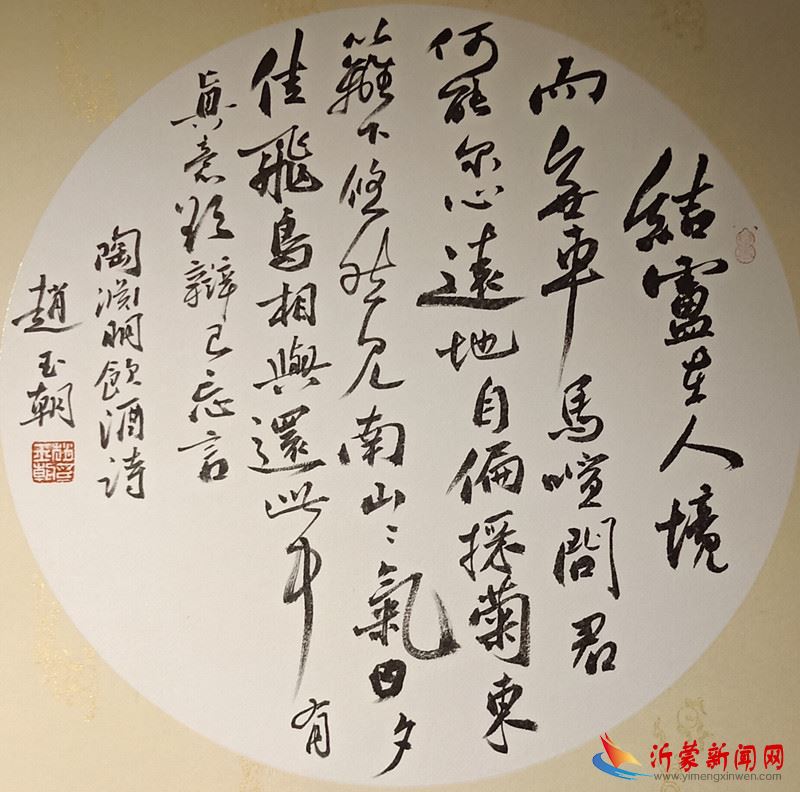 結盧在人境
而無車馬喧問君
何能尔心遠地自偏採菊東
籬下悠然見南山〻氣日夕
佳飛鳥相與還此中有
眞意欲辯已忘言
陶淵明飲酒詩
趙玉朝
沂蒙新闻网
www.yimengxinwen.com